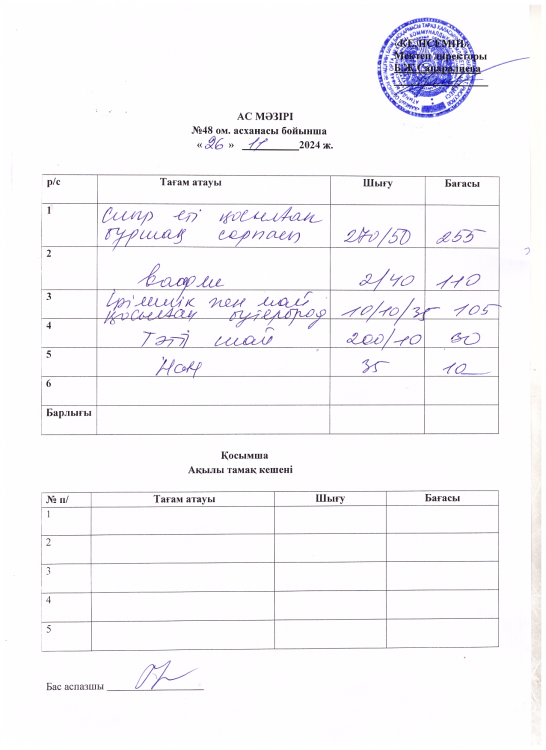 «КЕЛІСЕМІН»
Мектеп директоры
Б.Ж.Сапаралиева
АС МӘЗІРІ
№48 ом. асханасы бойынша
« 26 » 11 2024 ж.
р/с Тағам атауы Шығу Бағасы
1 Сиыр еті қосылған
бұршақ сорпасы 270/50 255
2 вафли 2/40 110
3 Ірімшік пен май
қосылған бутерброд 10/10/35 105
4 Тәтті шай 200/10
5 Нан 35 10
6
Барлығы
Қосымша
Ақылы тамақ кешені
№ п/ Тағам атауы Шығу Бағасы
1
2
3
4
5
Бас аспазшы